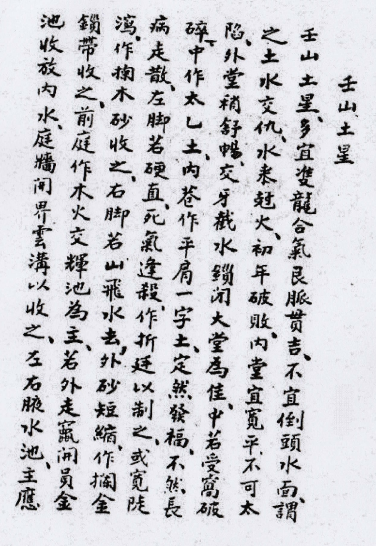 壬山土星
壬山土星、多宜雙龍合氣艮脈貫吉、不宜倒頭水面、謂
之土水交仇、水来尅火、初年破敗、內堂宜寬平、不可太
陷、外堂稍舒暢、交牙截水鎖闭大堂為佳、中若受窩破
碎、中作太乙土、內苍作平肩一字土、定然發福、不然、長
病走散、左脚若硬直、死氣逢殺、作折廷以制之、或寬陡
瀉、作攔木砂收之、右脚若山飛水去、外砂短縮、作攔金
鎖帶收之、前庭作木火交輝池為主、若外走竄開員金
池收放內水、庭墻闭界雲溝以收之、左右腋水池、主應